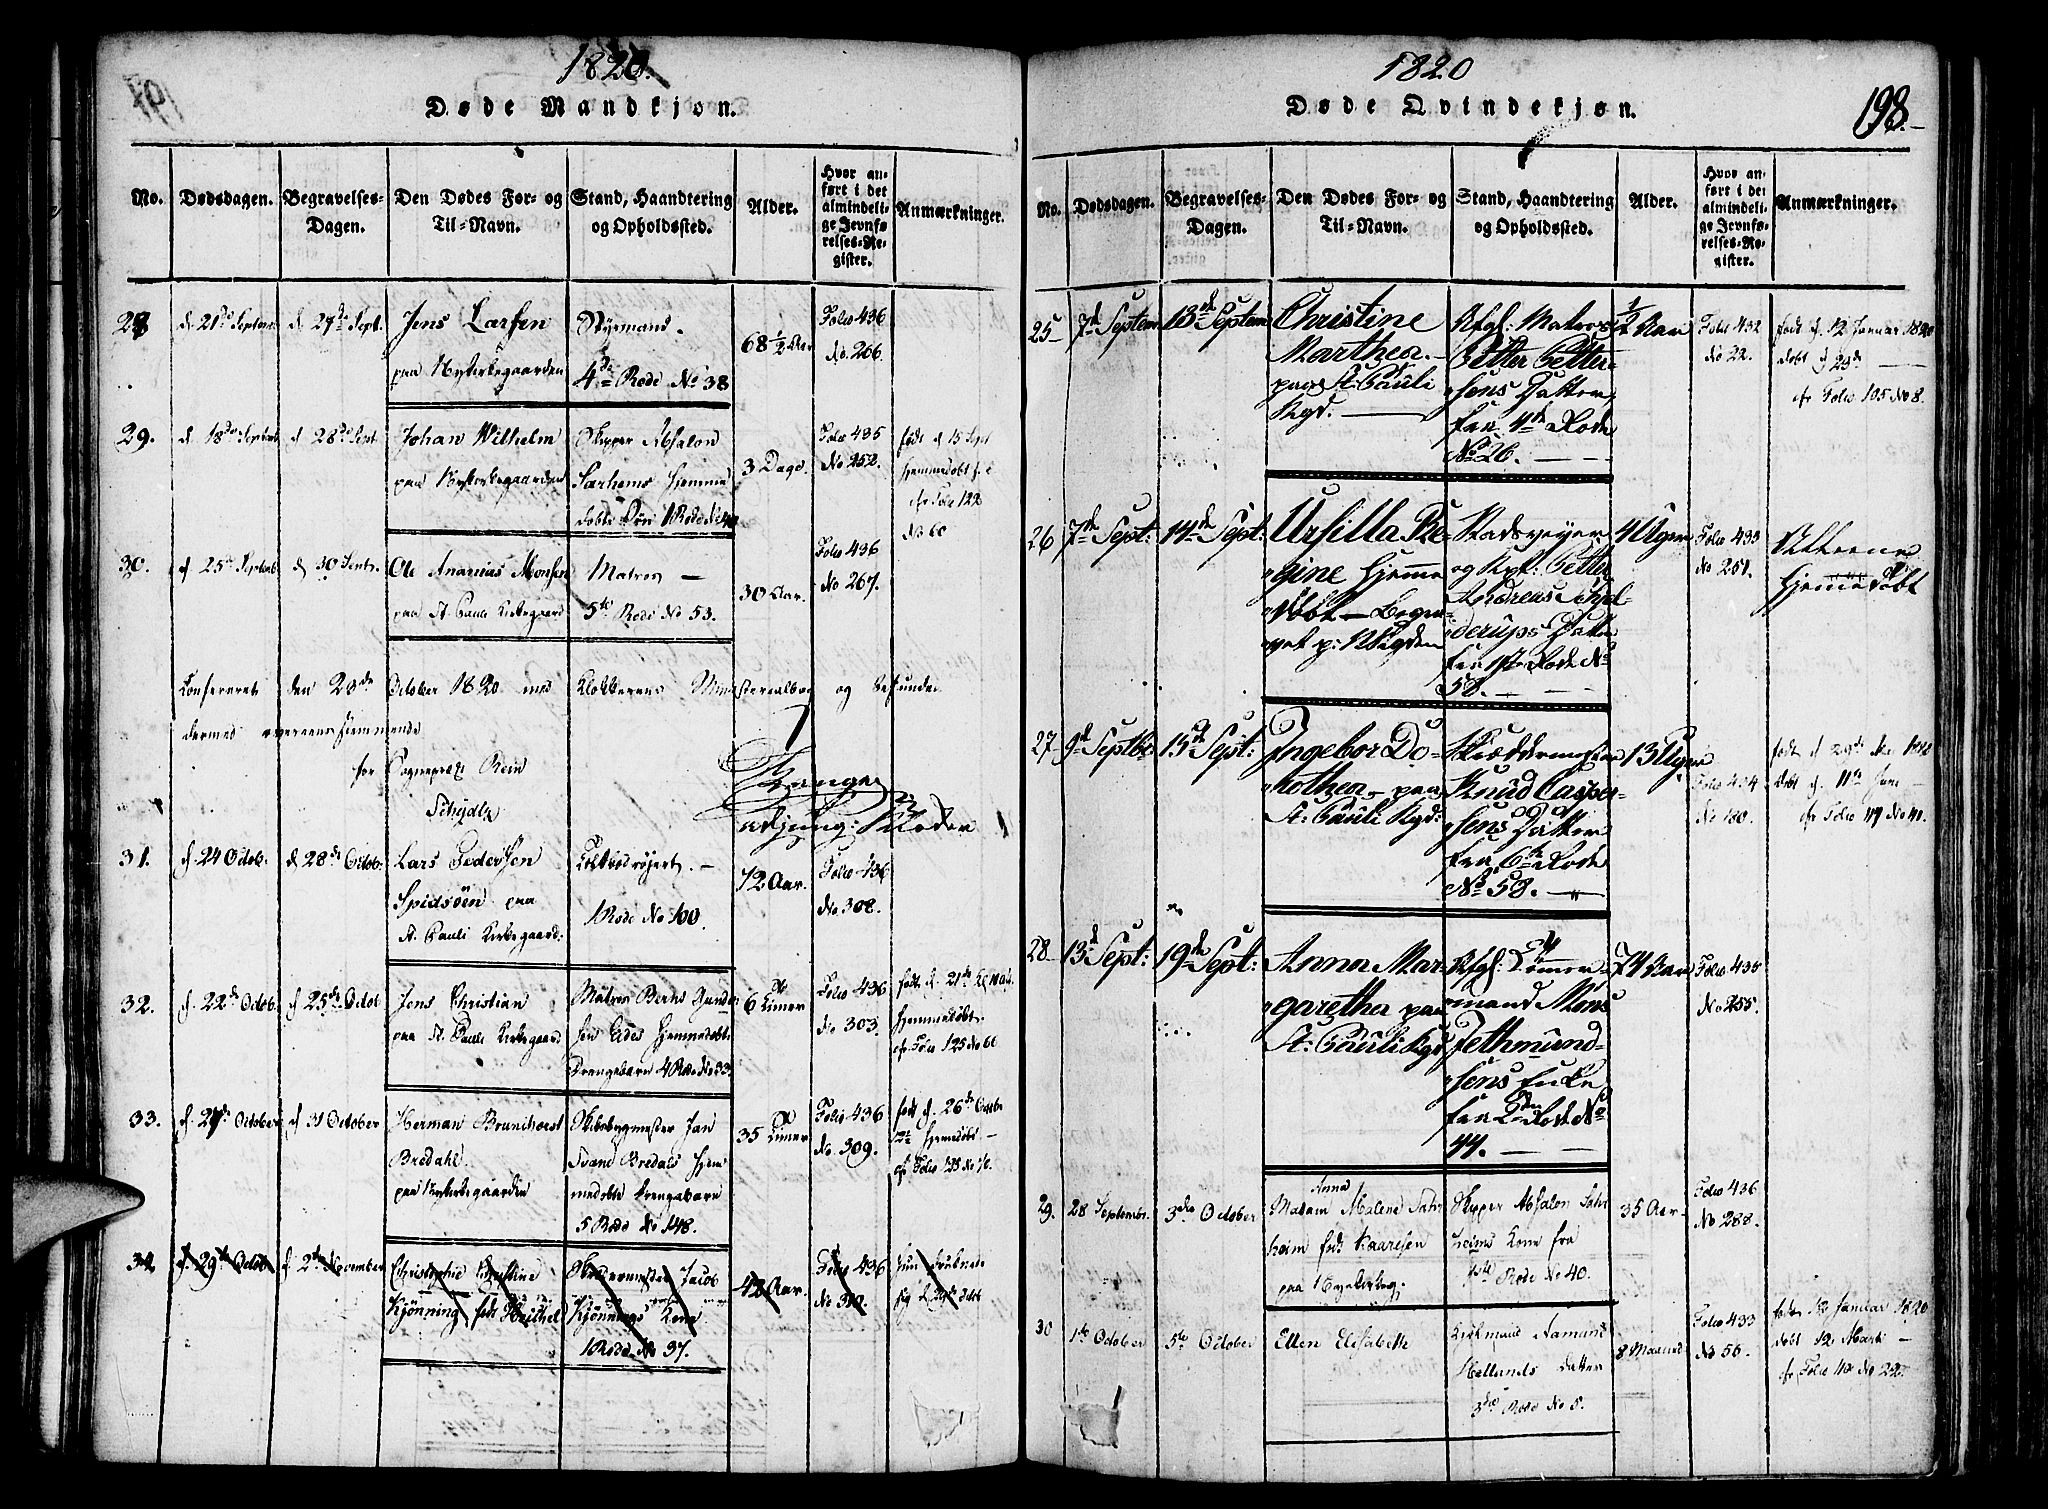 1820.
Døde Mandkjøn.
No.
Dødsdagen.
Begravelses-
Dagen.
Den Dødes For- og
Til-Navn.
Stand, Haandtering
og Opholdssted.
Alder.
Hvor an-
ført i det
almindeli-
ge Jevnfø-
relses-Re-
gister.
Anmærkninger.
28
d. 21de Septem
d. 27de Sept.
Jens Larsen
paa Nykirkegaarden
Styrmand.
4de Rode No 38
68 1/2 Aar
Folio 436
No. 266.
29.
d. 18de Septemb
d. 28de Sept
Johan Wilhelm
paa Nykirkegaarden
Skipper Absalon
Sarhems Hjemme
døbte Søn 1 Rode No 40
3 Dage.
Folio 435
No 252.
født d. 15 Sept
hjemmedøbt
cfr Folio 122
No 60
30.
d. 25de Septemb
d. 30 Septr.
Ole Ananias Monsen
paa St. Pauli Kirkegaard
Matros —
5te Rode No 53.
30 Aar.
Folio 436
No 267.
Confereret den 23de October 1820 med Klokkerens Ministerialbog og befunden
dermed overeensstemmende
for Sogneprest Rein
31.
d. 24 Octob.
d. 28de Octob.
Lars Pedersen
Spidsøen paa
St. Pauli Kirkegaard.
1 Rode No 100.
72 Aar.
Folio 436
No. 308.
32.
d. 22de Octob.
d. 25de Octob
Jens Christian
paa St. Pauli Kirkegaard
Matros Bernt Gunder
sen Eides Hjemmedøbt
Drengebarn 4 Rode No 53.
6 Timer
Folio 436
No. 303.
Hjemmedøbt
cfr Folio 125 No 66
33.
d. 27de October
d. 31 October
Herman Brunchorst
Bredahl.
paa Nykirkegaarden
Skibsbygmester Jan
Svane Bredals Hjem
medøbte Drengebarn
5 Rode No 148.
35 Timer
Folio 436
No. 309.
født d. 26de Octbr
Hjemmedøbt —
cfr Folio 125 No
34.
d. 29de Octob
d. 2de November
Christophie Christine
Kjønning født
Jacob
Kjønnings Kone
1 Rode No 37.
42 Aar.
Folio 436
No. 310.
1820
Døde Qvindekjøn.
198.
No.
Dødsdagen.
Begravelses-
Dagen.
Den Dødes For- og
Til-Navn.
Stand, Haandtering
og Opholdssted.
Alder.
Hvor an-
ført i det
almindeli-
ge Jevnfø-
relses-Re-
gister.
Anmærkninger.
25
7de Septem
13de Septem
Christine
Marthea.
paa St: Pauli
Kgd.
Afgl: Matros
Petter Petter-
sens Datter
fra 4de Rode
No 26.
1/2 Aar
Folio 432
No 22.
født d. 12 Januar 1820
døbt d 23de
cfr Folio 105 No 8.
26
7de Sept:
14de Sept:
Ursilla Re-
gine Hjemme
døbt — Begra-
vet p: N Kigden
Stadsveyer
og Kpt: Petter
Andreas Syl-
derups Datter
fra 1ste Rode No
58.
4 Uger
Folio 433
No 251.
Alleene
Hjemedøbt
27
9de Septbr
15de Sept:
Ingebor Do-
rothea, paa
St: Pauli Kgd:
Skræddermester
Knud Casper-
sens Datter
fra 6te Rode
No 58.
13 Uger
Folio 434
No 180.
døbt d. 11te Juni
cfr Folio 119 No 41.
28
13de Sept:
19de Sept:
Anna Mar-
garetha paa
St: Pauli Kgd
Afgl: Tømmer-
mand Mons
Jethmund-
sens Enke
fra 2den Rode No
44.
74 Aar
Folio 435
No 255.
29.
28 Septembr.
3die October
Anna
Madam Malene Sahr
heim født Kaarssen
paa Nykirkeg.
Skipper Absalon Sahr
heims Kone fra
1ste Rode No 40.
35 Aar.
Folio 436
No 288.
30
1ste October
5te October
Ellen Elisabeth
Aamund
Hellands Datter
3die Rode No 5.
8 Maaned
Folio 433
No 56.
født 12 Januar 1820
døbt 12 Marti —
cfr Folio 110 No 22.